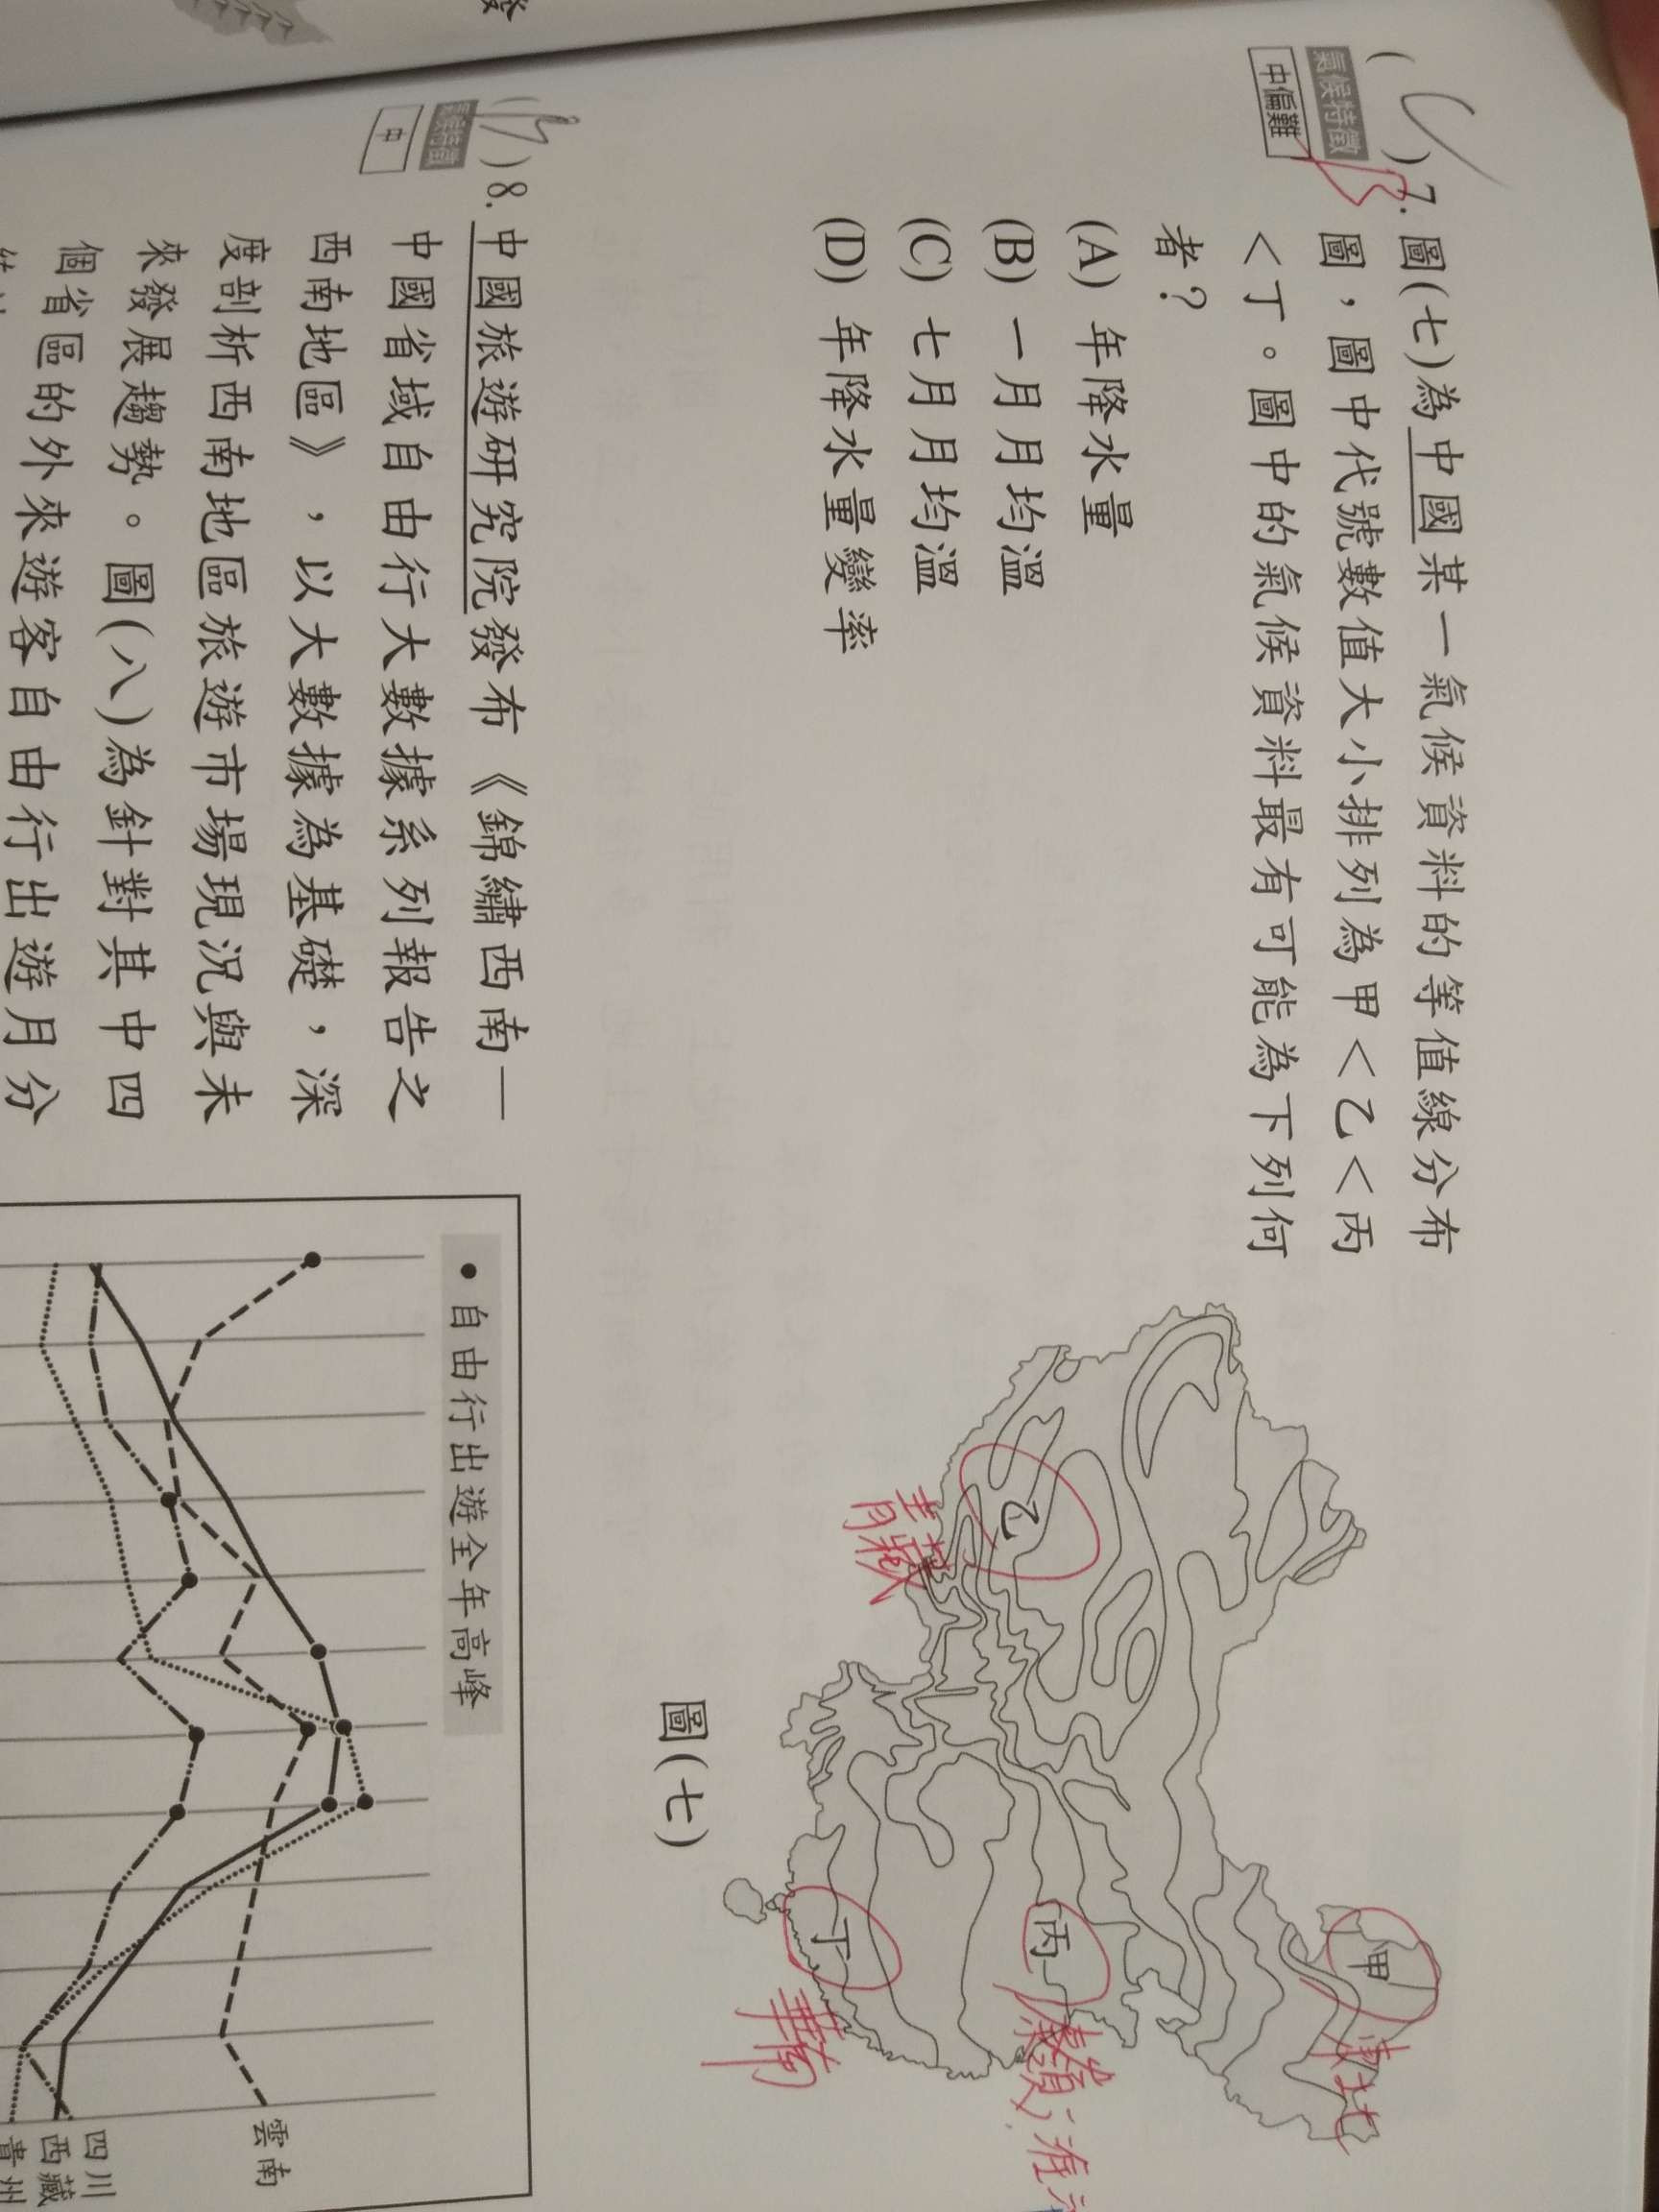 氣候特徵
中偏難
( )7. 圖(七)為中國某一氣候資料的等值線分布
圖，圖中代號數值大小排列為甲＜乙＜丙
＜丁。圖中的氣候資料最有可能為下列何
者？
(A) 年降水量
(B) 一月月均溫
(C) 七月月均溫
(D) 年降水量變率
甲
乙
丙
丁
東北
青藏
秦嶺淮
華南
圖(七)
中
( )8. 中國旅遊研究院發布《錦繡西南—
中國省域自由行大數據系列報告之
西南地區》，以大數據為基礎，深
度剖析西南地區旅遊市場現況與未
來發展趨勢。圖(八)為針對其中四
個省區的外來遊客自由行出遊月分
● 自由行出遊全年高峰
雲南
四川
西藏
貴州